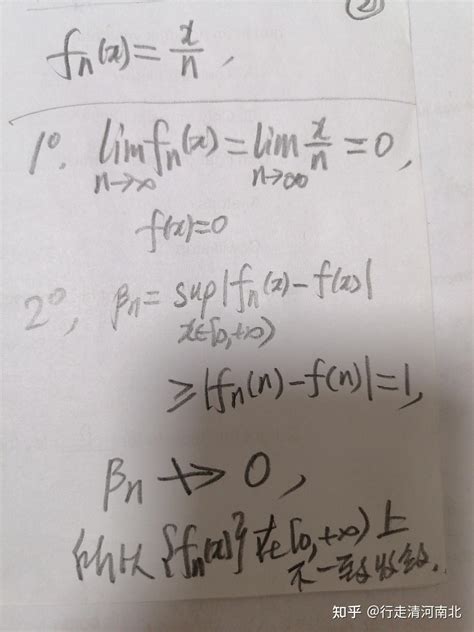 (2)
fₙ(x)=x/n,
1°. lim_{n→∞} fₙ(x)=lim_{n→∞} x/n=0,
f(x)=0
2°, βₙ=sup_{x∈[0,+∞)}|fₙ(x)-f(x)|
≥|fₙ(n)-f(n)|=1,
βₙ↛0,
所以{fₙ(x)}在[0,+∞)上
不一致收敛.
知乎 @行走清河南北